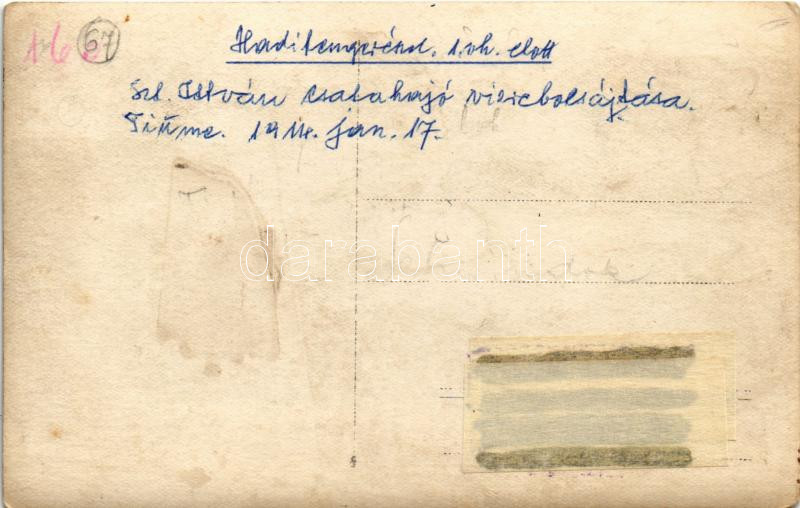 16 67
Haditengerészd. I. vh. előtt
Szt. István csatahajó vizrebolsájtása.
Fiume. 1914. jan. 17.
darabanth